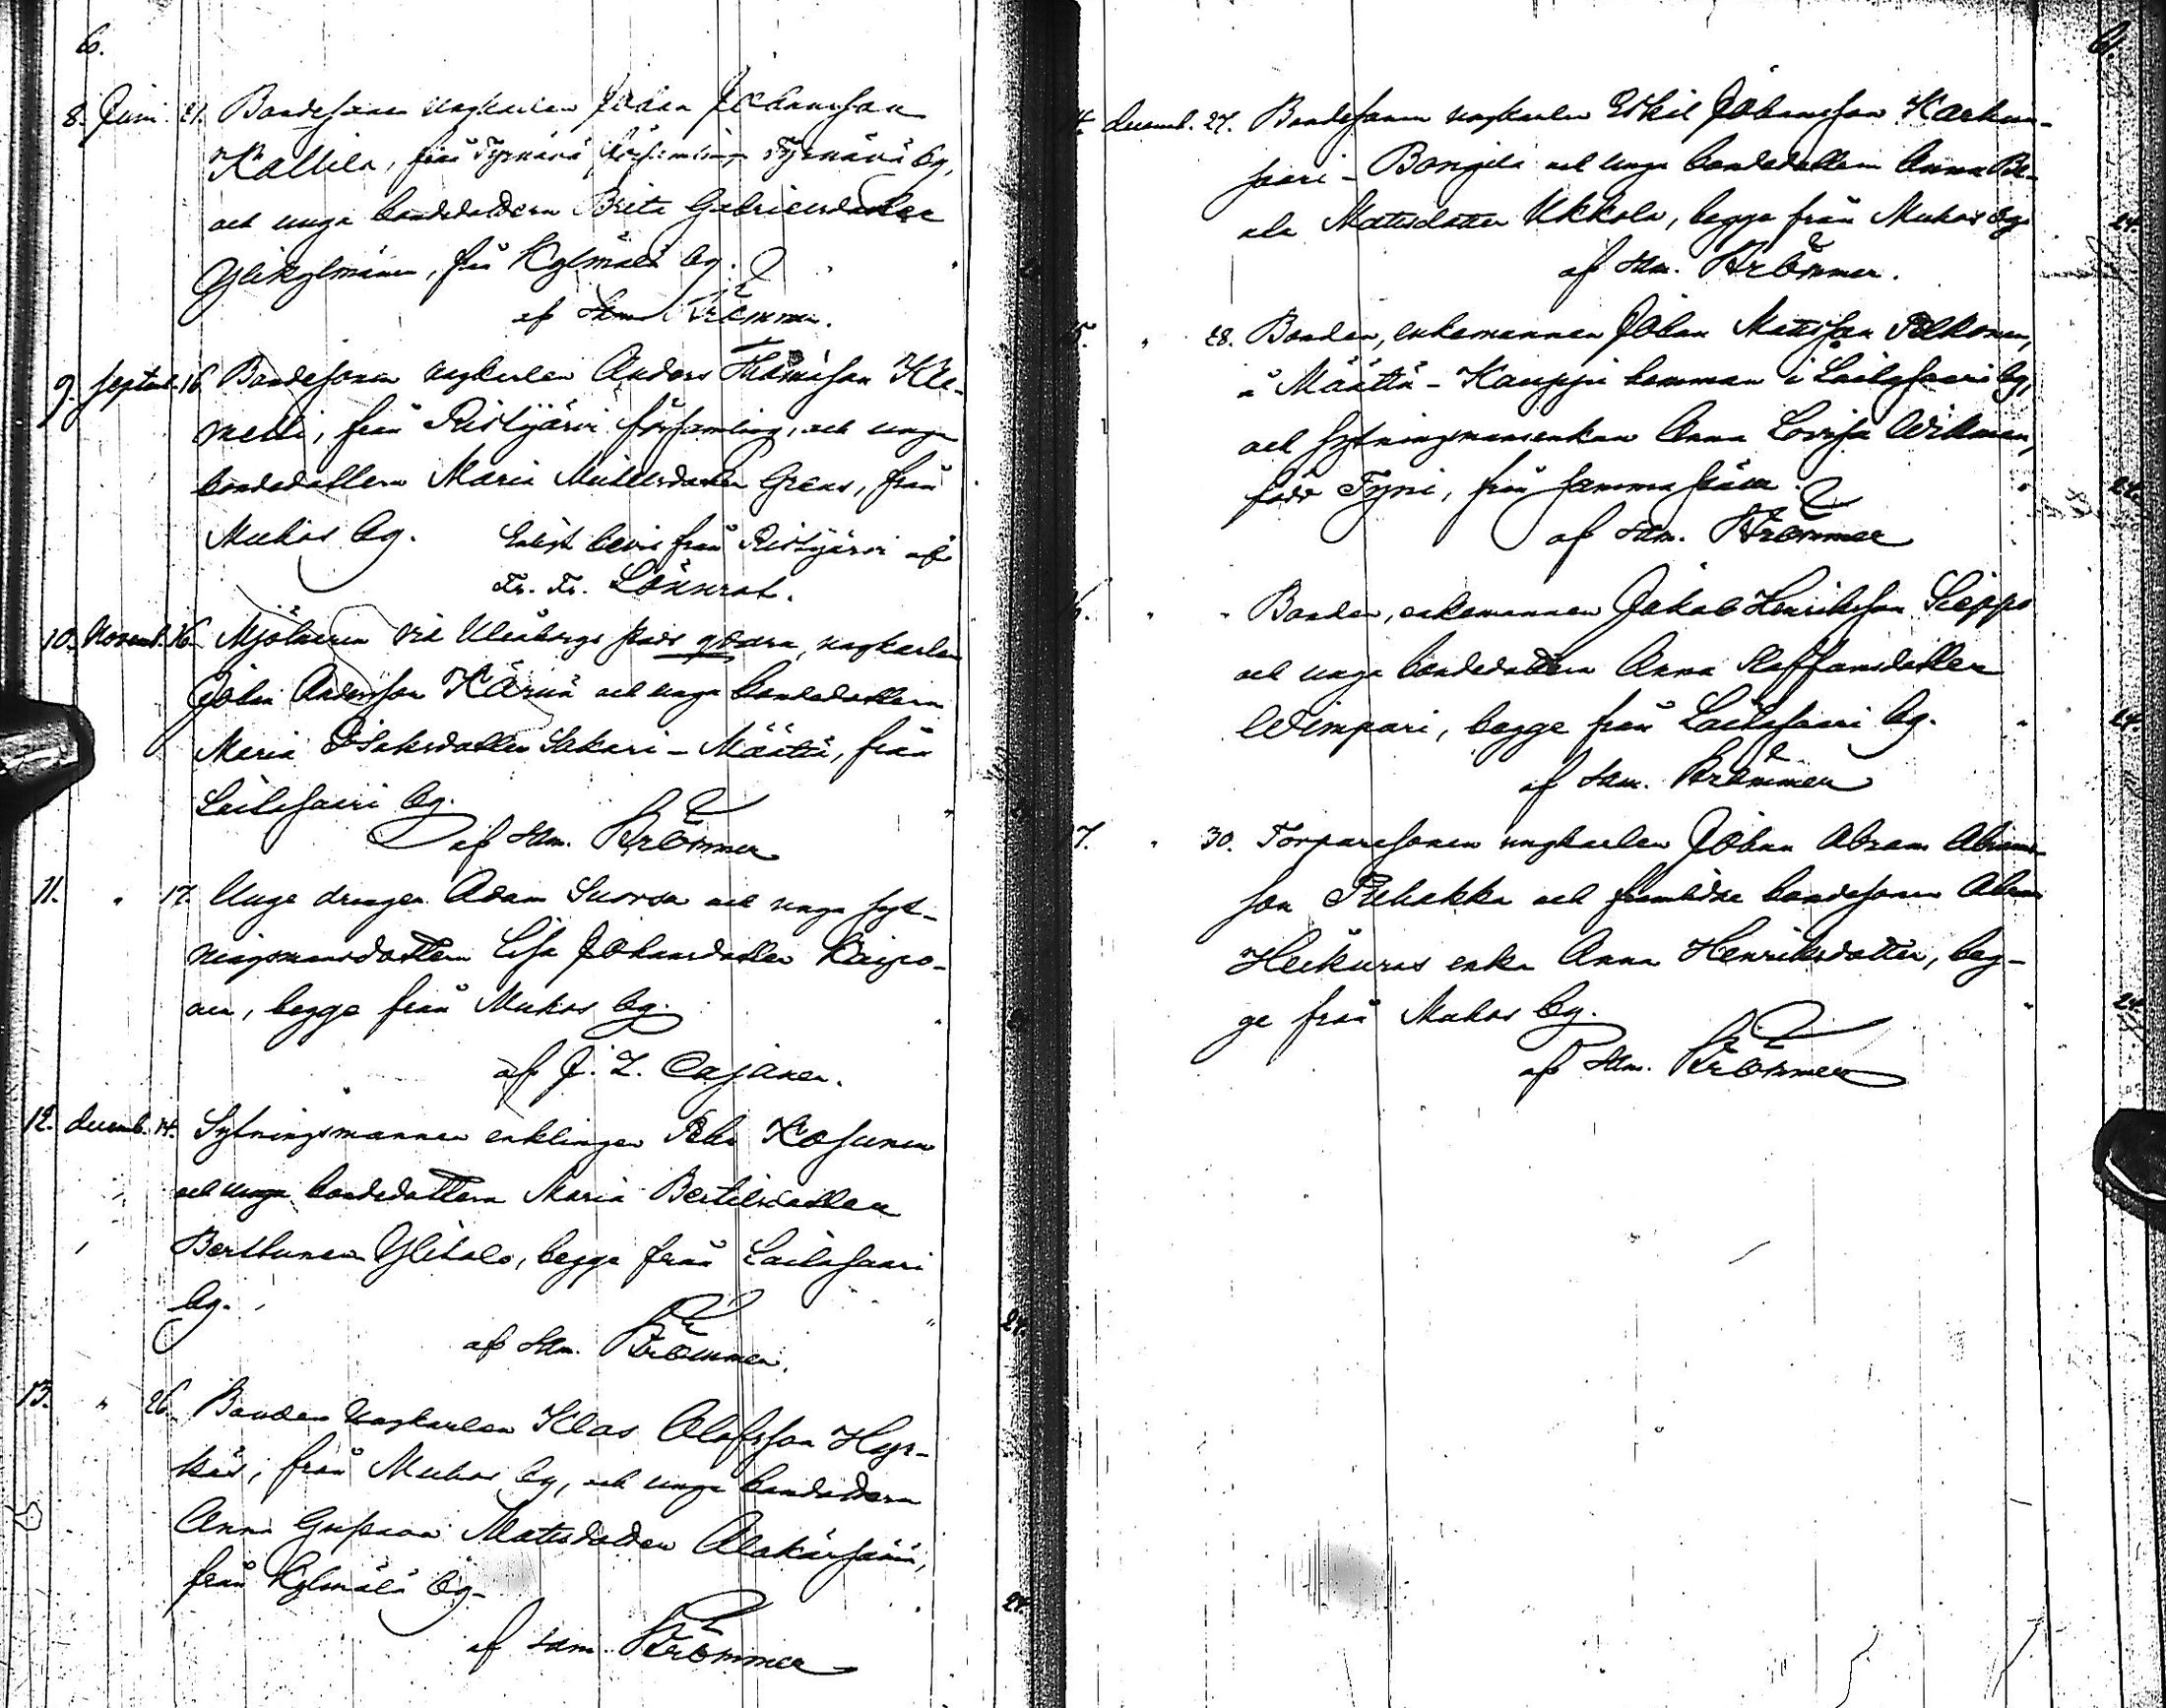 6.
8. Juni 21. Bondesonen ungkarlen Johan Johansson
Kallila, från Tyrnävä församling Tyrnävä by,
och unga bondedottern Brita Gabrielsdotter
Ylikylmänen, från Kylmälä by.
af Sam. Krömmer.
9. Septemb. 16. Bondesonen ungkarlen Anders Thomasson Kle-
metti, från Ristijärvi församling, och unga
bondedottern Maria Michelsdotter Grens, från
Muhos by. Enligt bevis från Ristijärvi af
Fr. Fr. Lönnrot.
10. Novemb. 16. Mjölnaren vid Uleåborgs stads qvarn, ungkarlen
Johan Andersson Kärnä och unga bondedottern
Maria Isaksdotter Sakari-Määttä, från
Laitasaari by.
af Sam. Krömmer
11. " 17. Unge drängen Adam Suorsa och unga syt-
ningsmansdottern Lisa Johansdotter Kaipo-
nen, begge från Muhos by.
af J. Z. Cajaner.
12. Decemb. 14. Sytningsmannen enklingen Pehr Kosunen
och unga bondedottern Maria Bertilsdotter
Berttunen Ylitalo, begge från Laitasaari
by. " 24.
af Sam. Krömmer.
13. " 26. Bonden ungkarlen Klas Olofsson Hyr-
käs, från Muhos by, och unga bondedottern
Anna Gustava Mattsdotter Alakärsämä,
från Kylmälä by. 24.
af Sam. Krömmer
6.
14. Decemb. 27. Bondesonen ungkarlen Eskil Johansson Karhun-
saari-Bongila och unga bondedottern Anna Be-
ata Mattsdotter Ukkola, begge från Muhos by. 24.
af Sam. Krömmer.
15. " 28. Bonden, enkemannen Johan Mattsson Pelkonen,
å Määttä-Kauppi hemman i Laitasaari by,
och sytningsmansenkan Anna Lovisa Wikman,
född Tyni, från samma by. " 24.
af Sam. Krömmer
16. " " Bonden, enkemannen Jakob Henriksson Seppo
och unga bondedottern Anna Staffansdotter
Wimpari, begge från Laitasaari by. " 24.
af Sam. Krömmer
17. " 30. Torparesonen ungkarlen Johan Abram Abrams-
son Pirhakka och framlidne bondesonen Abram
Heikuras enka Anna Henriksdotter, beg-
ge från Muhos by. " 24.
af Sam. Krömmer